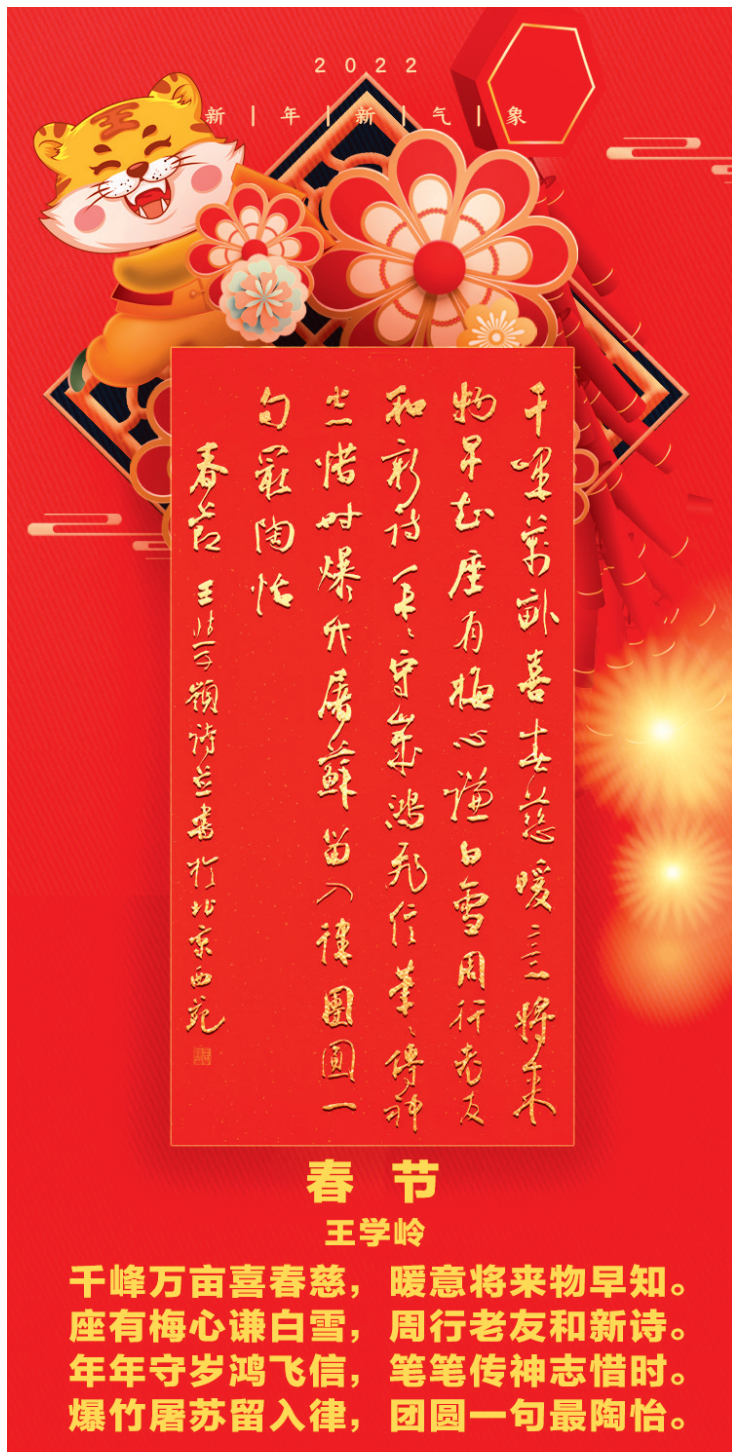 2022
新|年|新|气|象
千峰万亩喜春慈暖意将来
物早知座有梅心谦白雪周行老友
和新诗年年守岁鸿飞信笔笔传神
志惜时爆竹屠蘇留入律團圆一
句最陶怡
春节 王学岭诗并书于北京西苑
春 节
王学岭
千峰万亩喜春慈，暖意将来物早知。
座有梅心谦白雪，周行老友和新诗。
年年守岁鸿飞信，笔笔传神志惜时。
爆竹屠苏留入律，团圆一句最陶怡。